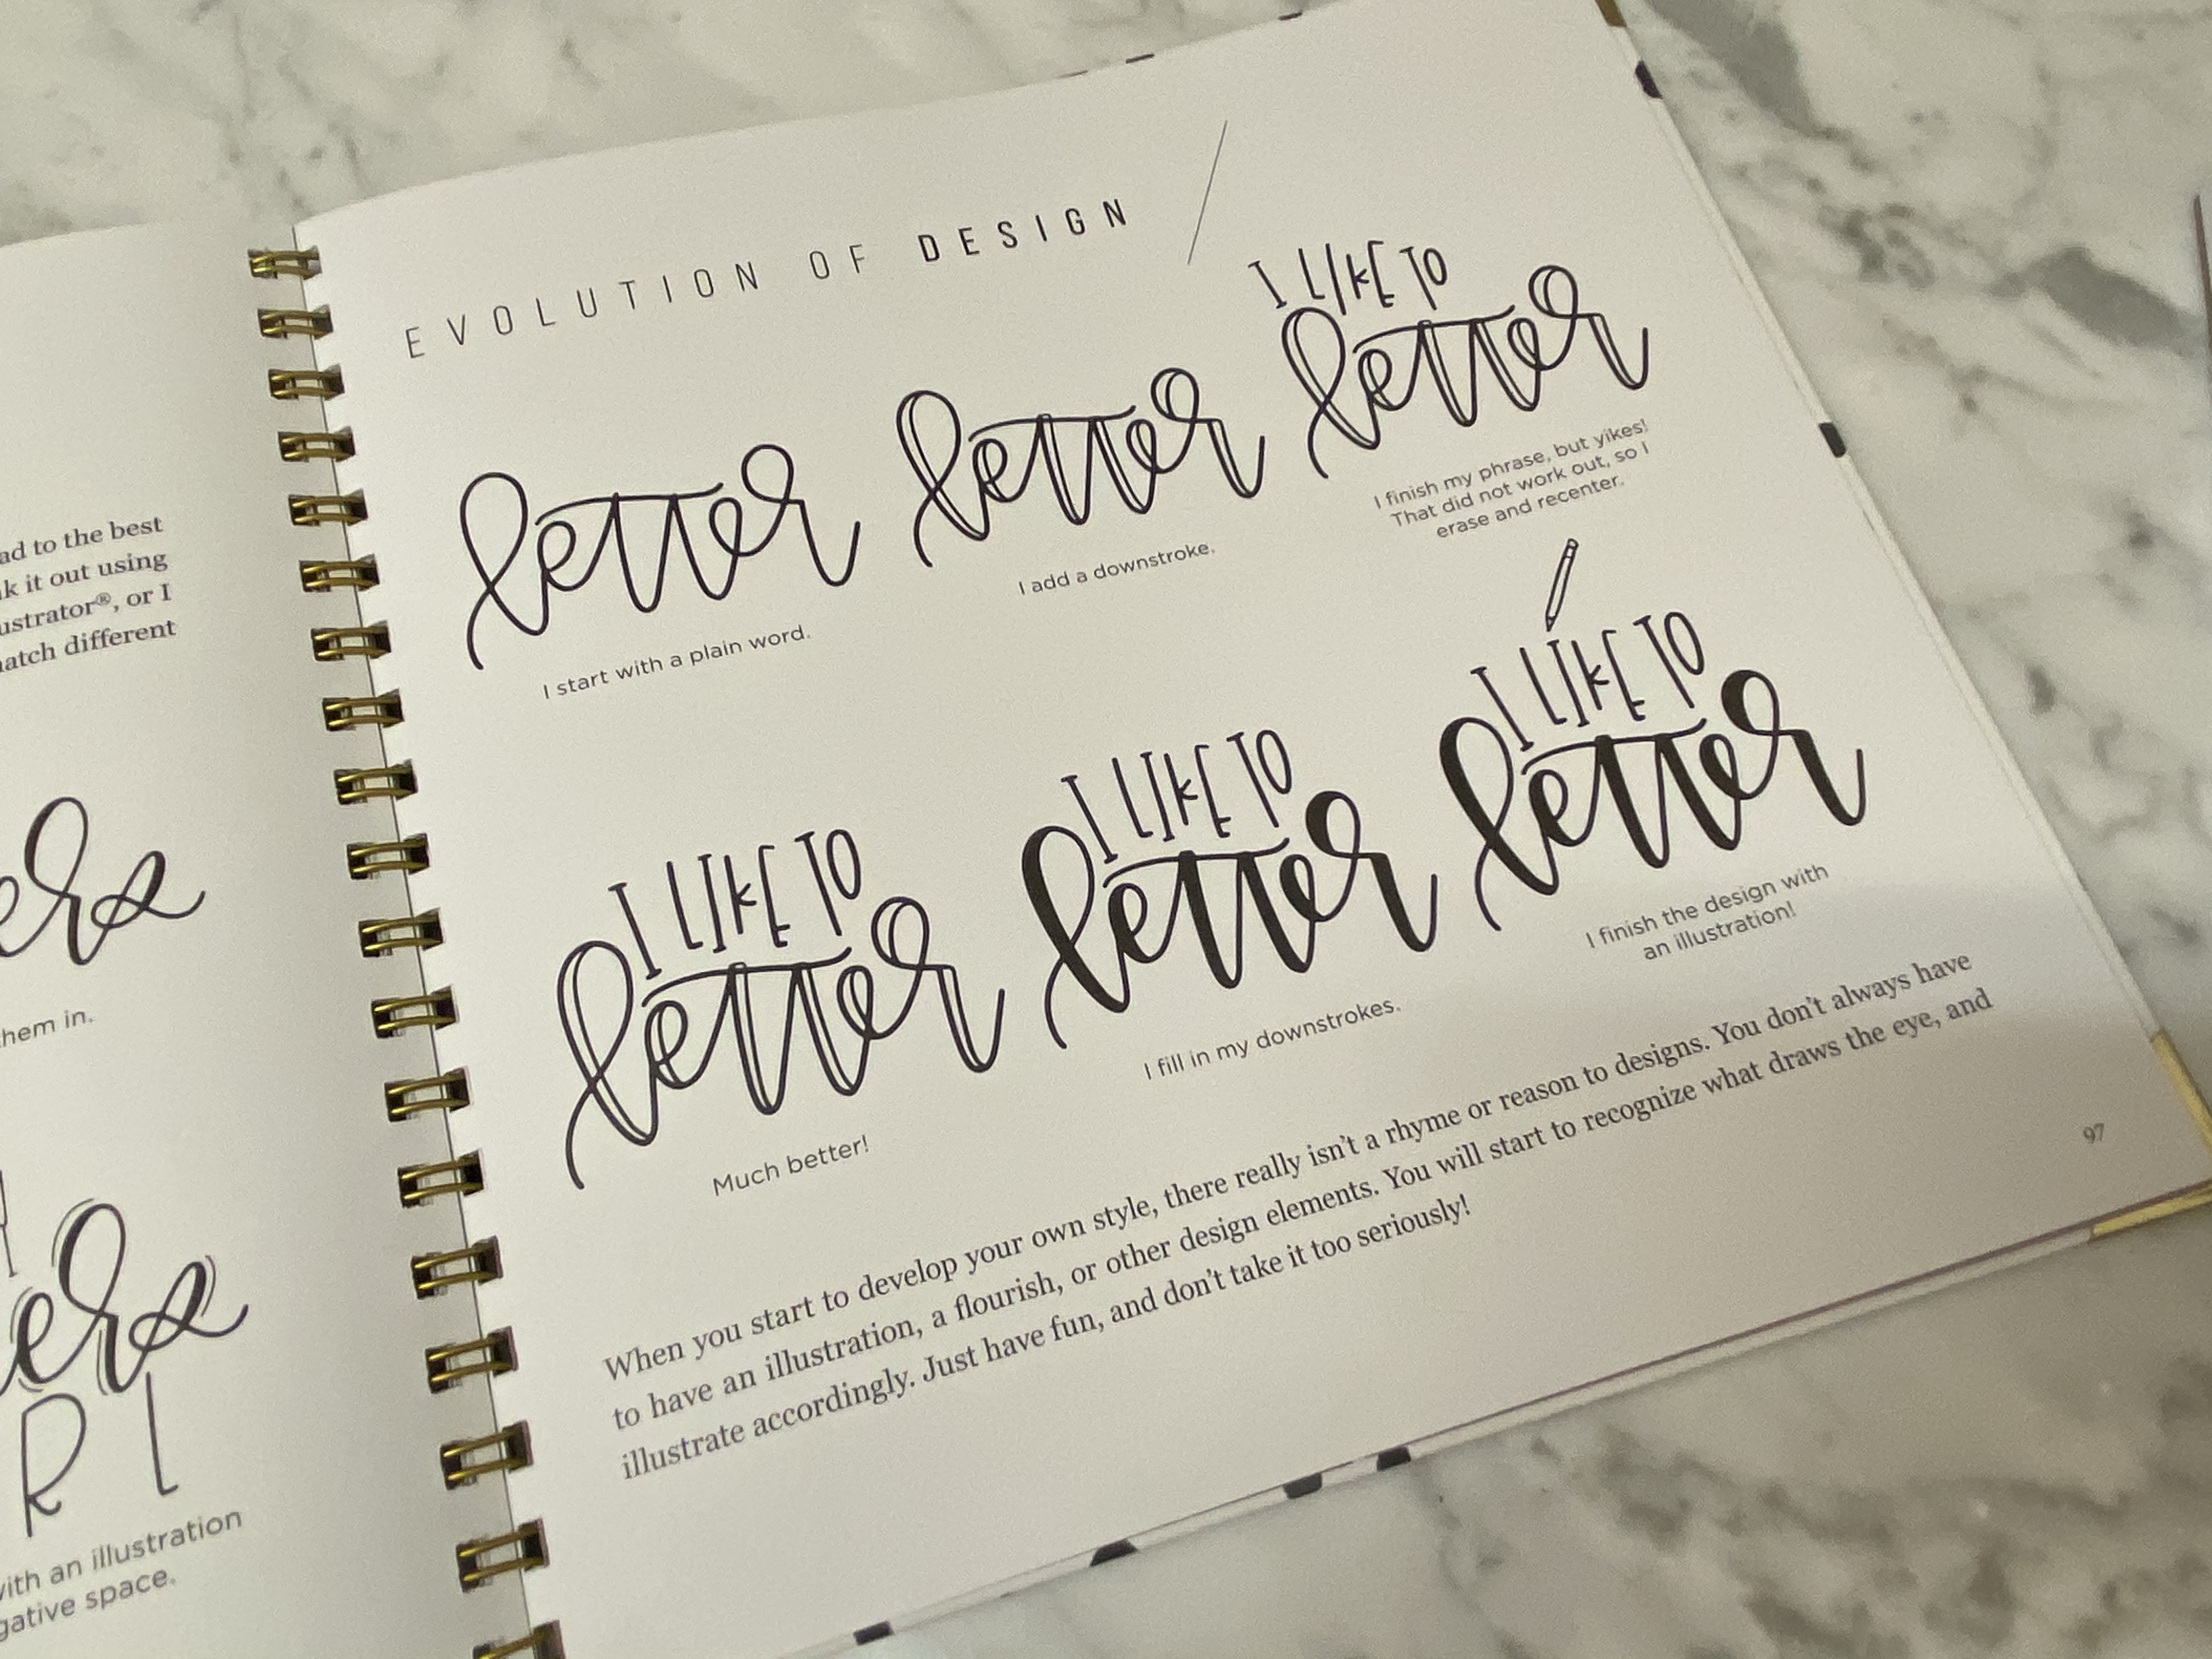 ad to the best
k it out using
ustrator®, or I
natch different
hem in.
R I
with an illustration
gative space.
EVOLUTION OF DESIGN
letter
I start with a plain word.
letter
I add a downstroke.
I LIKE TO
letter
I finish my phrase, but yikes!
That did not work out, so I
erase and recenter.
I LIKE TO
letter
Much better!
I LIKE TO
letter
I fill in my downstrokes.
I LIKE TO
letter
I finish the design with
an illustration!
When you start to develop your own style, there really isn't a rhyme or reason to designs. You don't always have
to have an illustration, a flourish, or other design elements. You will start to recognize what draws the eye, and
illustrate accordingly. Just have fun, and don't take it too seriously!
97